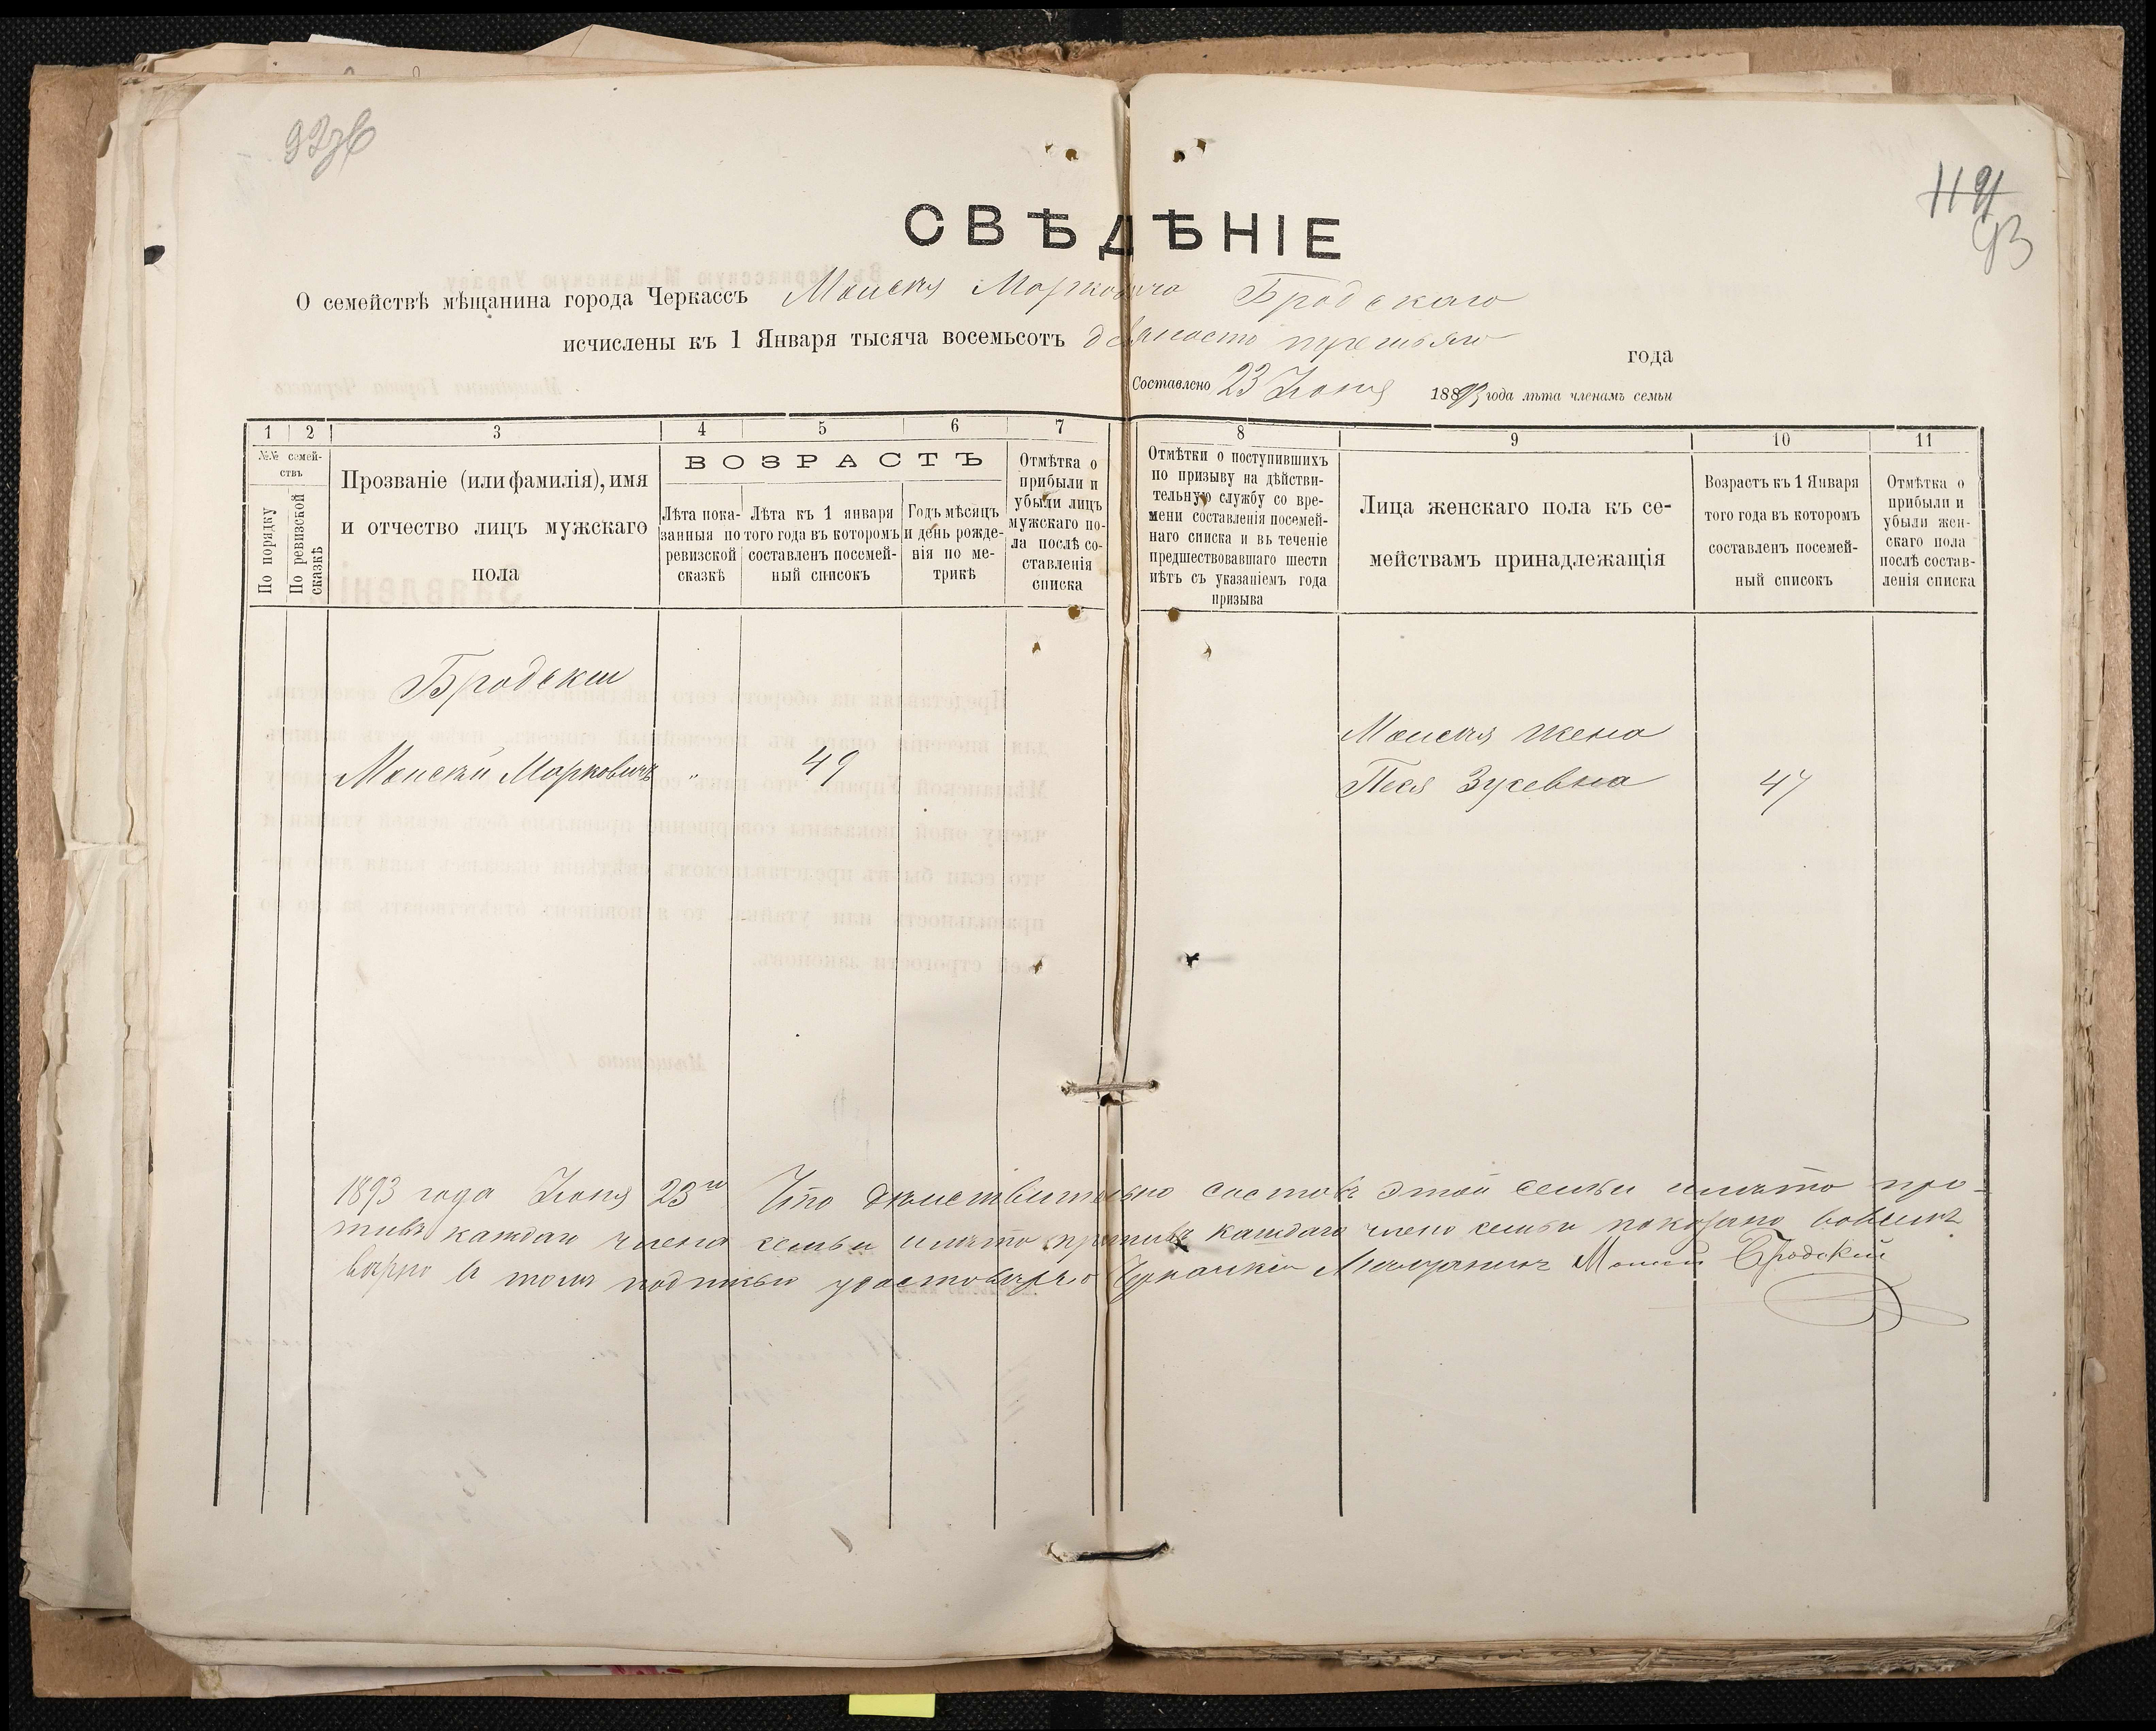 92
119
93
СВѢДѢНІЕ
О семействѣ мѣщанина города Черкассъ Моисея Марковича Бродскаго
исчислены къ 1 Января тысяча восемьсотъ девяносто третьяго года
Составлено 23 Іюня 1893 года лѣта членамъ семьи
1 2 3 4 5 6 7 8 9 10 11
№№ семей-
ствъ
По порядку
По ревизской
сказкѣ
Прозваніе (или фамилія), имя
и отчество лицъ мужскаго
пола
ВОЗРАСТЪ
Лѣта пока-
занныя по
ревизской
сказкѣ
Лѣта къ 1 января
того года въ которомъ
составленъ посемей-
ный списокъ
Годъ мѣсяцъ
и день рожде-
нія по ме-
трикѣ
Отмѣтка о
прибыли и
убыли лицъ
мужскаго по-
ла послѣ со-
ставленія
списка
Отмѣтки о поступившихъ
по призыву на дѣйстви-
тельную службу со вре-
мени составленія посемей-
наго списка и въ теченіе
предшествовавшаго шести
лѣтъ съ указаніемъ года
призыва
Лица женскаго пола къ се-
мействамъ принадлежащія
Возрастъ къ 1 Января
того года въ которомъ
составленъ посемей-
ный списокъ
Отмѣтка о
прибыли и
убыли жен-
скаго пола
послѣ состав-
ленія списка
Бродскій
Моисей Марковичъ " 49
Моисея жена
Песя Зусевна 47
1893 года Іюня 23го Что дѣйствительно составъ этой семьи и лѣта про-
тивъ каждаго члена семьи и лѣта противъ каждаго члена семьи показано
вѣрно въ томъ подписью удостовѣряю Черкаскій Мѣщанинъ Бродскій